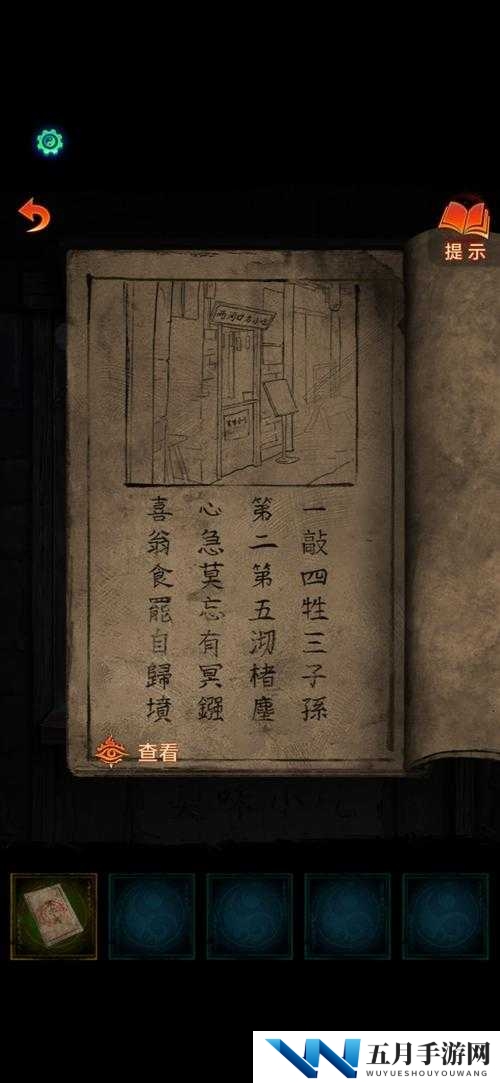 提示
一敲四牲三子孫
第二第五沏楮塵
心急莫忘有冥鏹
喜翁食罷自歸墳
查看
五月手游网
WUYUESHOUYOUWANG